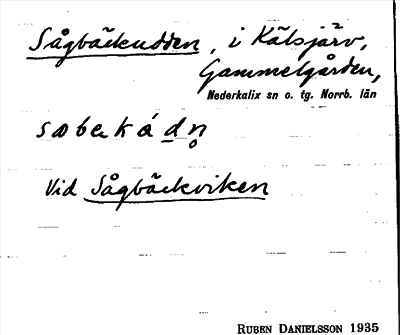 Sågbäckudden, i Kälsjärv,
Gammelgården,
Nederkalix sn o. tg. Norrb. län
Vid Sågbäckviken
RUBEN DANIELSSON 1935